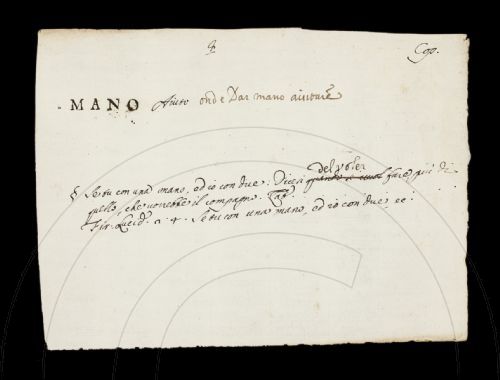 Cgo.
MANO Aiuto onde Dar mano aiutare
del voler
§ Se tu con una mano, ed io con due. Dicesi quando si vuol fare più di
quello, che vorrebbe il compagno.
Fir. Lucid. a. 4. Se tu con una mano, ed io con due ec.